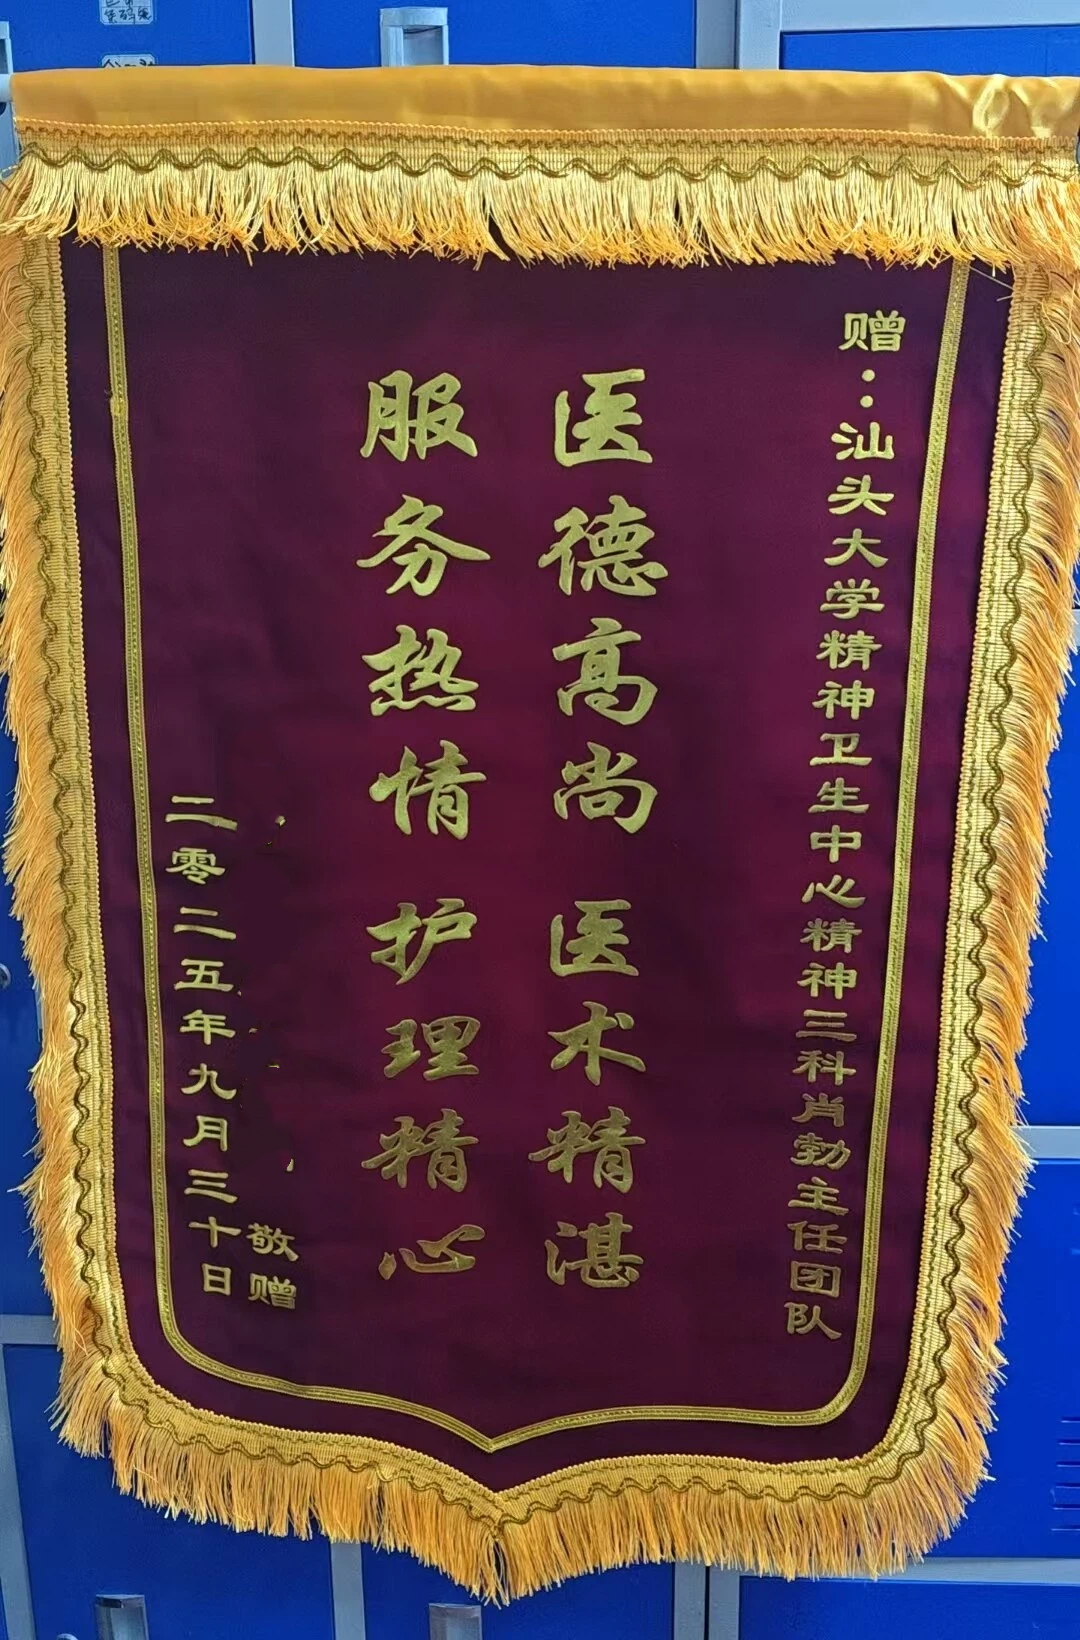 赠：汕头大学精神卫生中心精神三科肖勃主任团队
医德高尚 医术精湛
服务热情 护理精心
敬赠
二零二五年九月三十日